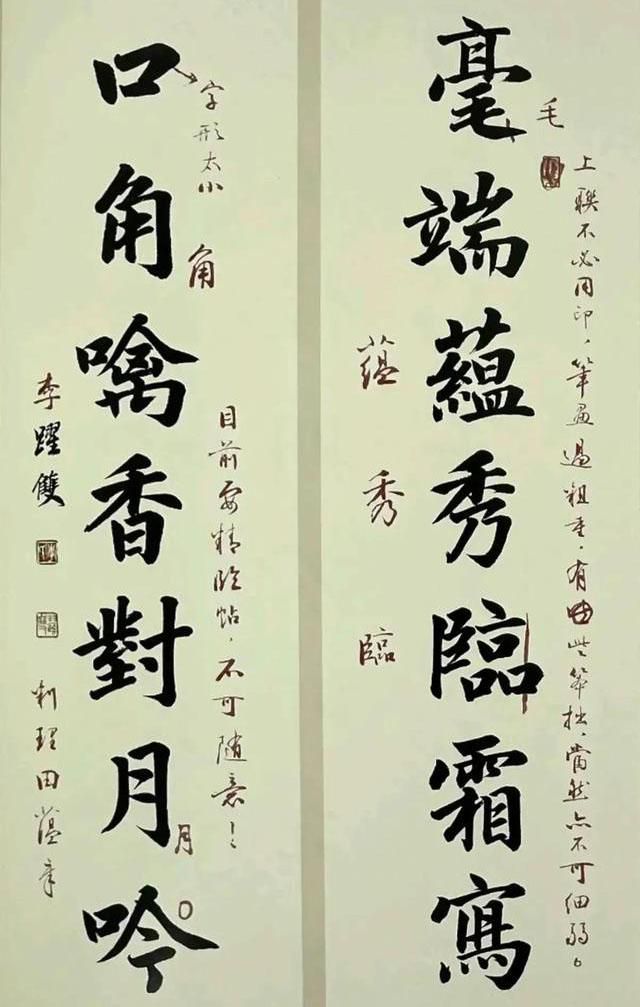 毫端蘊秀臨霜寫
毛
上联不必用印，筆画過粗重，有些筆拙，當然亦不可细弱。
蘊
秀
臨
口角噙香對月吟
字形太小
角
目前要精临帖，不可随意！
月
李躍雙
田蕴章